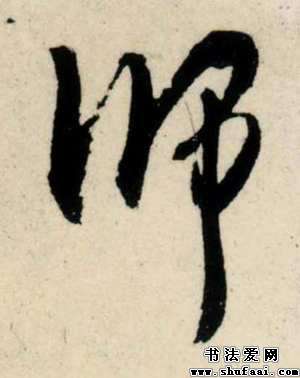 师
书法爱网
www.shufaai.com